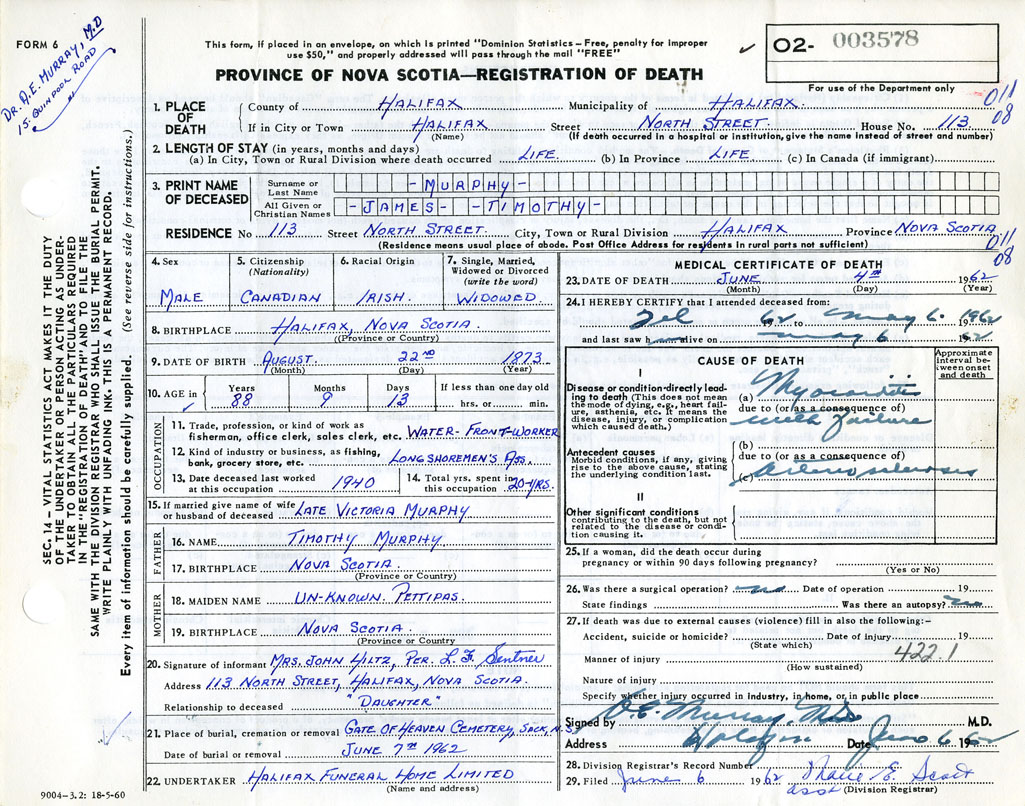 FORM 6
DR. A.E. MURRAY, M.D
15 QUINPOOL ROAD
This form, if placed in an envelope, on which is printed "Dominion Statistics – Free, penalty for improper
use $50," and properly addressed will pass through the mail "FREE"
O2- 003578
PROVINCE OF NOVA SCOTIA—REGISTRATION OF DEATH
For use of the Department only
011
08
1. PLACE OF DEATH
County of HALIFAX Municipality of HALIFAX.
If in City or Town HALIFAX Street NORTH STREET. House No. 113
(Name) (If death occurred in a hospital or institution, give the name instead of street and number)
2. LENGTH OF STAY (in years, months and days)
(a) In City, Town or Rural Division where death occurred LIFE. (b) In Province LIFE (c) In Canada (if immigrant)
3. PRINT NAME OF DECEASED
Surname or Last Name -MURPHY-
All Given or Christian Names -JAMES- -TIMOTHY-
RESIDENCE No 113 Street NORTH STREET. City, Town or Rural Division HALIFAX Province NOVA SCOTIA
(Residence means usual place of abode. Post Office Address for residents in rural parts not sufficient)
011
08
4. Sex MALE
5. Citizenship (Nationality) CANADIAN
6. Racial Origin IRISH.
7. Single, Married, Widowed or Divorced (write the word) WIDOWED.
8. BIRTHPLACE HALIFAX, NOVA SCOTIA.
(Province or Country)
9. DATE OF BIRTH AUGUST. 22ND 1873
(Month) (Day) (Year)
10. AGE in Years 88 Months 9 Days 13 If less than one day old hrs. or min.
OCCUPATION
11. Trade, profession, or kind of work as
fisherman, office clerk, sales clerk, etc. WATER-FRONT-WORKER
12. Kind of industry or business, as fishing,
bank, grocery store, etc. LONGSHOREMEN'S ASS.
13. Date deceased last worked
at this occupation 1940
14. Total yrs. spent in
this occupation 20-YRS.
15. If married give name of wife
or husband of deceased LATE VICTORIA MURPHY
FATHER
16. NAME TIMOTHY MURPHY
17. BIRTHPLACE NOVA SCOTIA.
(Province or Country)
MOTHER
18. MAIDEN NAME UN-KNOWN. PETTIPAS.
19. BIRTHPLACE NOVA SCOTIA.
(Province or Country
20. Signature of informant MRS. JOHN HILTZ, PER. L.F. Sentner
Address 113 NORTH STREET, HALIFAX, NOVA SCOTIA.
Relationship to deceased "DAUGHTER"
21. Place of burial, cremation or removal GATE OF HEAVEN CEMETERY, SACK, N.S.
Date of burial or removal JUNE 7TH 1962
22. UNDERTAKER HALIFAX FUNERAL HOME LIMITED
(Name and address)
9004–3.2: 18-5-60
MEDICAL CERTIFICATE OF DEATH
23. DATE OF DEATH JUNE 4TH 1962
(Month) (Day) (Year)
24. I HEREBY CERTIFY that I attended deceased from:
Feb 62 to May 6. 1962
and last saw h alive on May 6 1962
CAUSE OF DEATH
Approximate interval between onset and death
I
Disease or condition directly leading to death (This does not mean the mode of dying, e.g., heart failure, asthenia, etc. It means the disease, injury, or complication which caused death.)
(a) Myocarditis
due to (or as a consequence of)
with failure
Antecedent causes
Morbid conditions, if any, giving rise to the above cause, stating the underlying condition last.
(b)
due to (or as a consequence of)
(c) Arteriosclerosis
II
Other significant conditions
contributing to the death, but not related to the disease or condition causing it.
25. If a woman, did the death occur during
pregnancy or within 90 days following pregnancy?
(Yes or No)
26. Was there a surgical operation? no Date of operation 19
State findings Was there an autopsy? no
27. If death was due to external causes (violence) fill in also the following:–
Accident, suicide or homicide? Date of injury 19
(State which)
Manner of injury 422.1
(How sustained)
Nature of injury
Specify whether injury occurred in industry, in home, or in public place
Signed by A.E. Murray M.D. M.D.
Address Halifax Date June 6 1962
28. Division Registrar's Record Number
29. Filed June 6 1962 Marie E. Scott
asst (Division Registrar)
SEC. 14– VITAL STATISTICS ACT MAKES IT THE DUTY
OF THE UNDERTAKER OR PERSON ACTING AS UNDER-
TAKER TO OBTAIN ALL THE PARTICULARS REQUIRED
IN THE "REGISTRATION OF DEATH" AND TO FILE THE
SAME WITH THE DIVISION REGISTRAR WHO SHALL ISSUE THE BURIAL PERMIT.
WRITE PLAINLY WITH UNFADING INK. THIS IS A PERMANENT RECORD.
Every item of information should be carefully supplied. (See reverse side for instructions.)